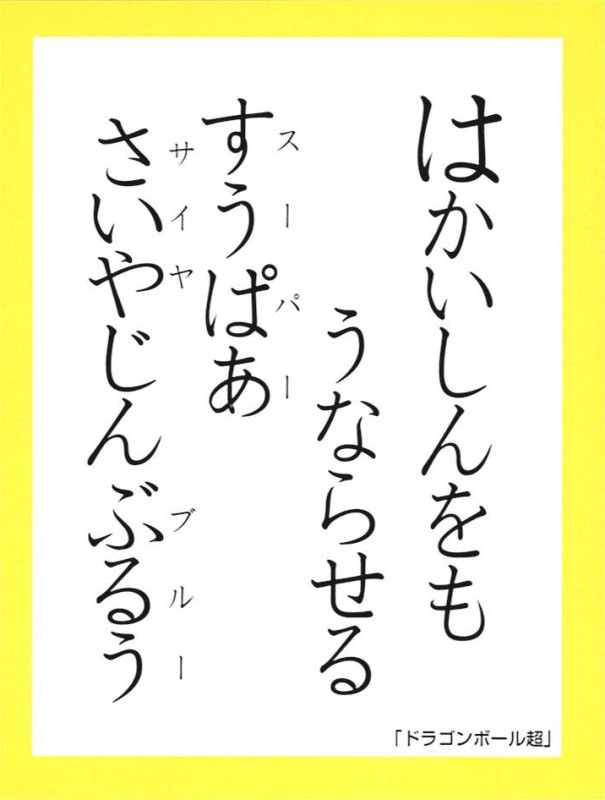 はかいしんをも
うならせる
すうぱあ
スーパー
さいやじんぶるう
サイヤ
ブルー
「ドラゴンボール超」